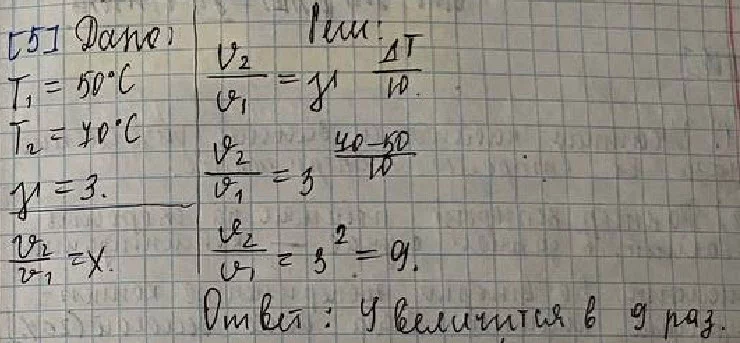 [5] Дано:
T₁ = 50°C
T₂ = 70°C
γ = 3.
v₂/v₁ = x.
Реш:
v₂/v₁ = γ^(ΔT/10).
v₂/v₁ = 3^((70-50)/10)
v₂/v₁ = 3² = 9.
Ответ: Увеличится в 9 раз.